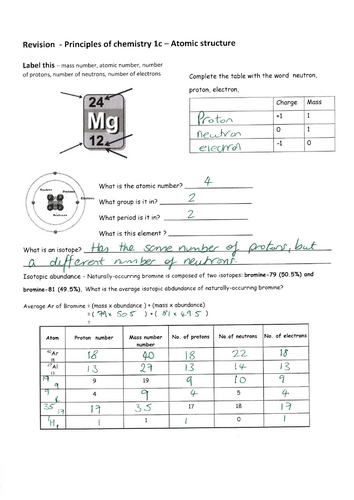 Revision - Principles of chemistry 1c – Atomic structure
Label this – mass number, atomic number, number
of protons, number of neutrons, number of electrons
Complete the table with the word neutron,
proton, electron,
Charge Mass
Proton +1 1
neutron 0 1
electron -1 0
24
Mg
12
Neutrons
What is the atomic number? 4
What group is it in? 2
What period is it in? 2
What is this element ?
What is an isotope? Has the same number of protons, but
a different number of neutrons.
Isotopic abundance – Naturally-occurring bromine is composed of two isotopes: bromine-79 (50.5%) and
bromine-81 (49.5%). What is the average isotopic abdundance of naturally-occurring bromine?
Average Ar of Bromine = (mass x abundance ) + (mass x abundance)
= ( 79 x 50.5 ) + ( 81 x 49.5 )
=
Atom Proton number Mass number number No. of protons No. of neutrons No. of electrons
40 Ar 18 18 40 18 22 18
27 Al 13 13 27 13 14 13
19 9 9 19 9 10 9
9 4 4 9 4 5 4
35 17 17 35 17 18 17
1 H 1 1 1 1 0 1